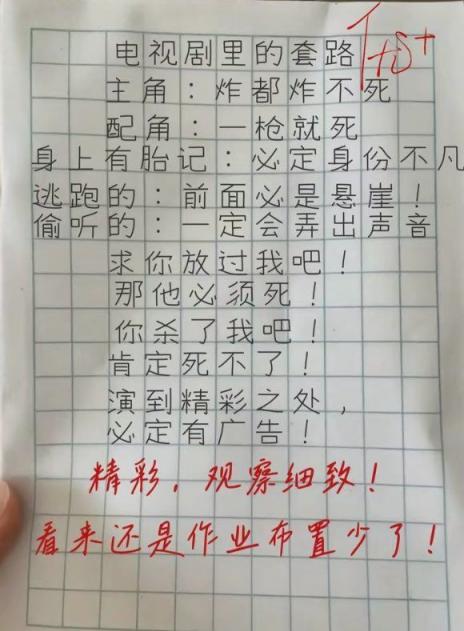 电视剧里的套路
主角：炸都炸不死
配角：一枪就死
身上有胎记：必定身份不凡
逃跑的：前面必是悬崖！
偷听的：一定会弄出声音
求你放过我吧！
那他必须死！
你杀了我吧！
肯定死不了！
演到精彩之处，
必定有广告！
精彩，观察细致！
看来还是作业布置少了！